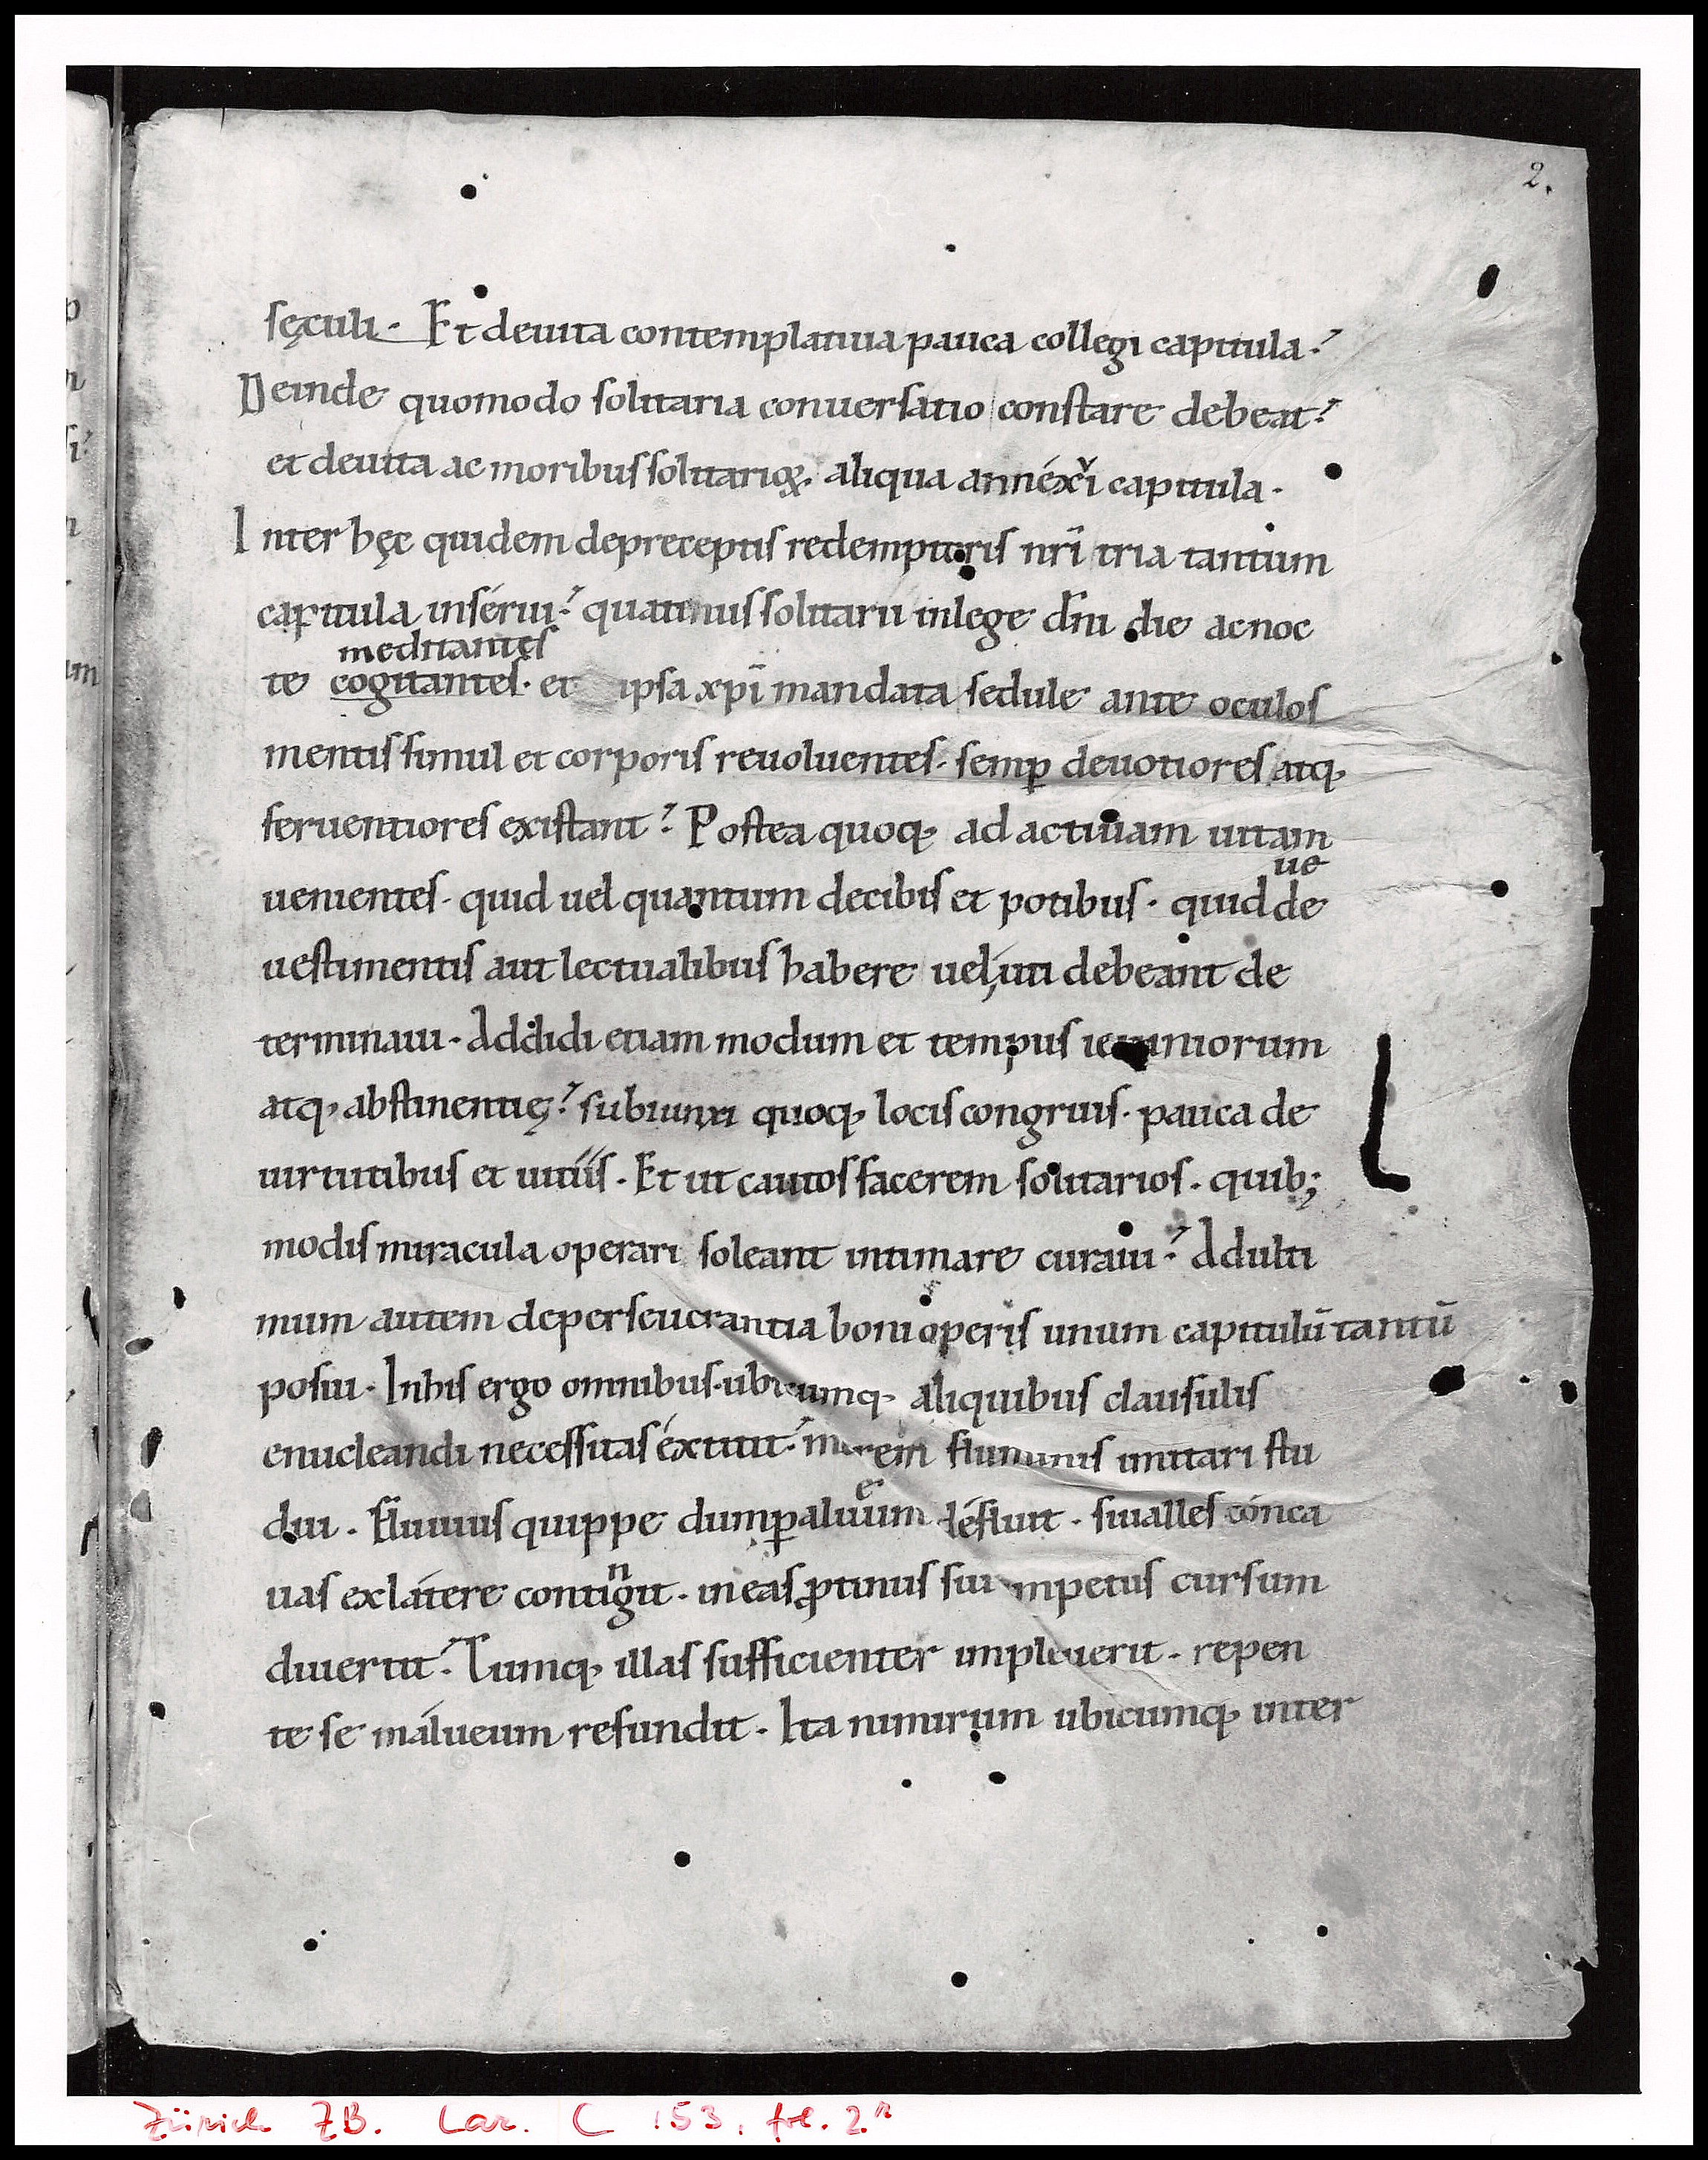 2.
sęculi. Et deuita contemplatiua pauca collegi capitula.
Deinde quomodo solitaria conuersatio constare debeat.
et deuita ac moribus solitarioꝝ. aliqua annéxi capitula.
Inter hęc quidem depreceptis redemptoris nr̄i tria tantum
capitula insérui. quatinus solitarii inlege dn̄i die acnoc
meditantes
te cogitantes. et ipsa xp̄i mandata sedule ante oculos
mentis simul et corporis reuoluentes. semꝑ deuotiores atq;
feruentiores existant. Postea quoq; ad actiuam uitam
ue
uenientes. quid uel quantum decibis et potibus. quid de
uestimentis aut lectualibus habere uel, uti debeant de
terminaui. Addidi etiam modum et tempus ieiuniorum
atq; abstinentię. subiunxi quoq; locis congruis. pauca de
uirtutibus et uitiis. Et ut cautos facerem solitarios. quib;
modis miracula operari soleant intimare curaui. Adulti
mum autem deperseuerantia boni operis unum capitulū tantū
posui. Inhis ergo omnibus. ubicumq; aliquibus clausulis
enucleandi necessitas éxtitit. morem fluminis imitari stu
e
dui. Fluuius quippe dumꝑ aluuim défluit. siualles cónca
n
uas exlátere contigit. ineas ꝓtinus sui impetus cursum
diuertit. Cumq; illas sufficienter impleuerit. repen
te se inálueum refundit. Ita nimirum ubicumq; inter
Zürich ZB. Car. C 153, fol. 2r